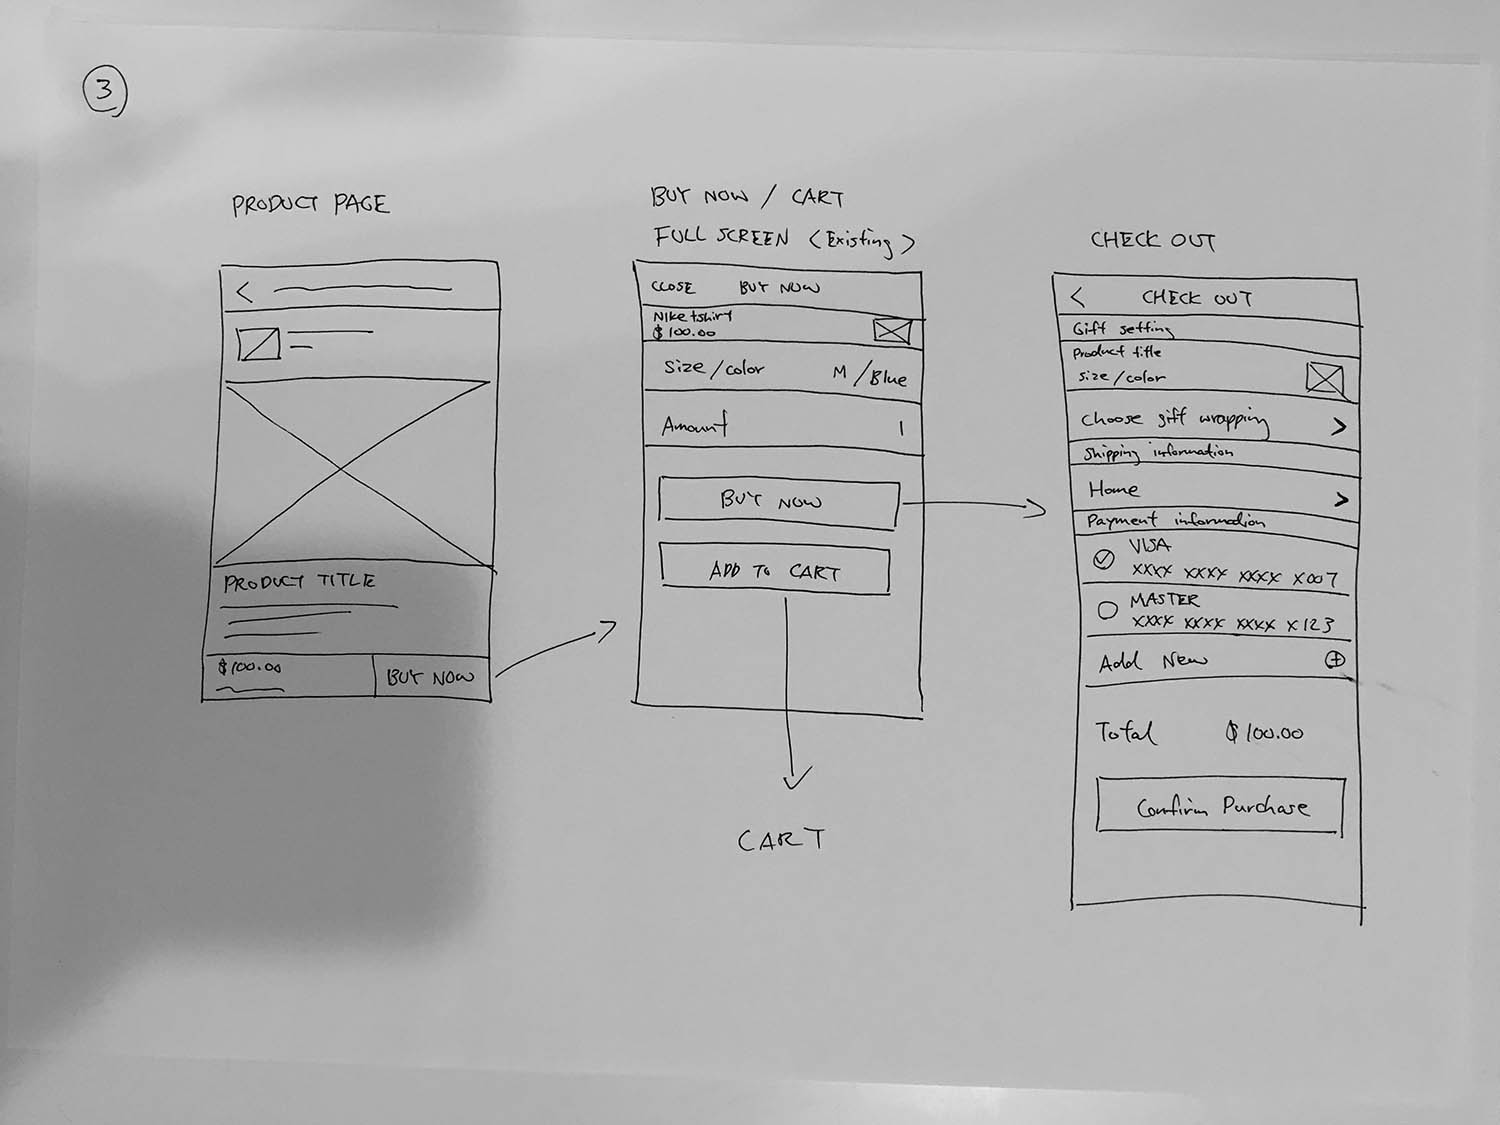 3
PRODUCT PAGE
$100.00
PRODUCT TITLE
BUY NOW
BUY NOW / CART
FULL SCREEN <Existing>
CLOSE BUY NOW
Nike tshirt
$100.00
Size/color M/Blue
Amount 1
BUY NOW
ADD TO CART
CART
CHECK OUT
CHECK OUT
Gift setting
Product title
size/color
Choose gift wrapping
Shipping information
Home
Payment information
VISA
XXXX XXXX XXXX X007
MASTER
XXXX XXXX XXXX X123
Add New
Total $100.00
Confirm Purchase